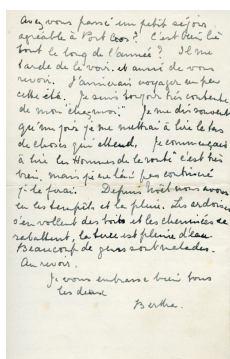 Avez vous passé un petit séjour
agréable à Port Cros? C'est bien là
tout le long de l'année? Il me
tarde de le voir, et aussi de vous
revoir. J'aimerais voyager un peu
cette été. Je suis toujours très contente
de mon "chez moi". Je me dis souvent
qu'un jour je me mettrai à lire le tas
de choses qui attend. Je commençais
à lire les Hommes de la route c'est très
bien, mais je ne l'ai pas continué
je le ferai. Depuis Noël nous avons
eu les tempêts et la pluie. Les ardoises
s'en vollent des toits et les cheminées se
rabattent, la terre est pleine d'eau.
Beaucoup de gens sont malades.
Au revoir.
Je vous embrasse bien tous
les deux
Berthe.